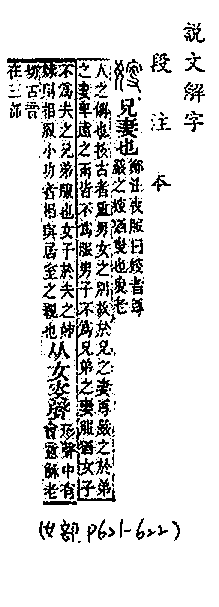 說文解字
段注本
㛮 兄妻也 鄭注喪服曰㛮者尊
嚴之偁㛮猶叟也叟老
人之偁也按古者重男女之別故於兄之妻尊嚴之於弟
之妻卑遠之而皆不爲服男子不爲兄弟之妻服猶女子
不爲夫之兄弟服也女子於夫之姊
妹則相服小功者相與居室之親也 从女叜聲 形聲中有
會意穌老
切古音
在三部
(女部 P621-622)